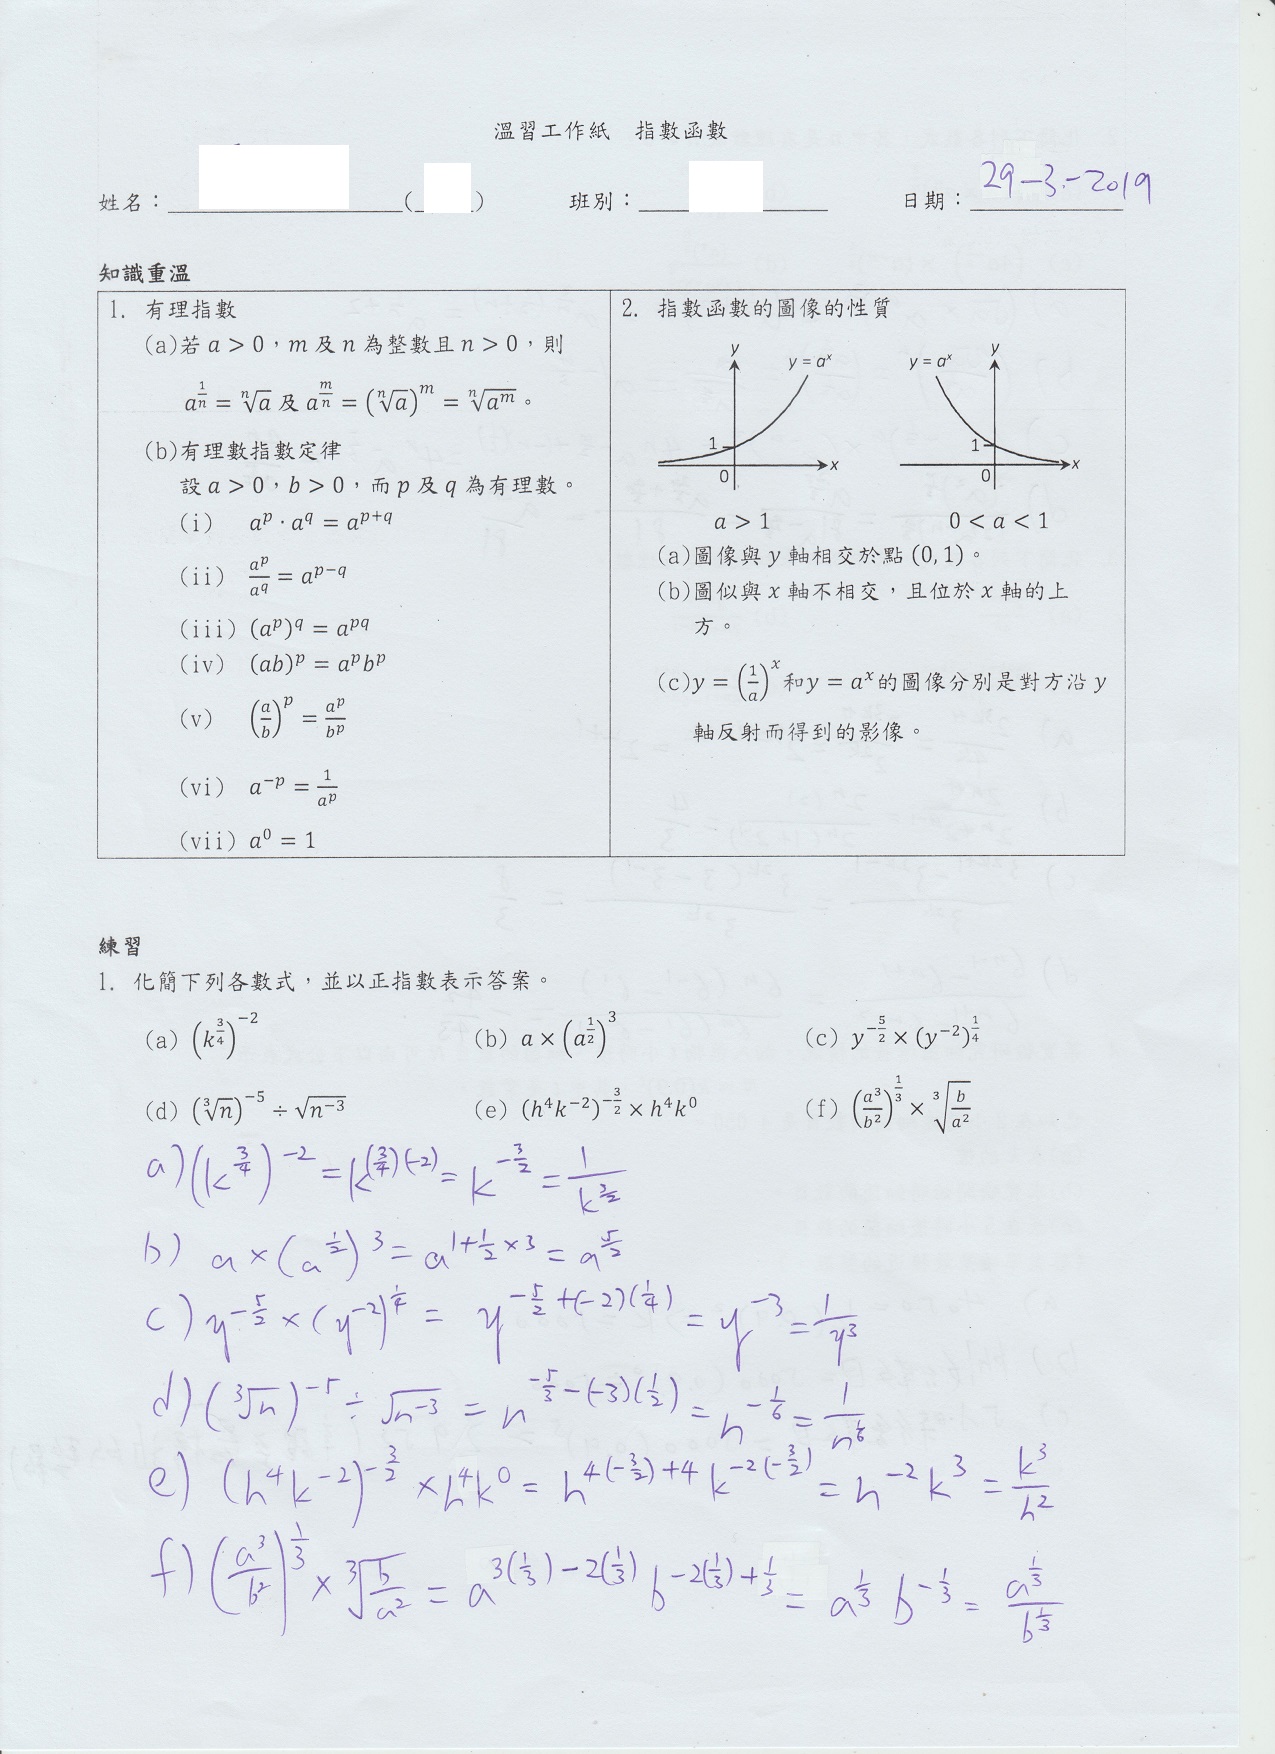 溫習工作紙　指數函數
姓名：__________(____)　班別：__________　日期：29-3-2019
知識重溫
1. 有理指數
(a)若 a > 0，m 及 n 為整數且 n > 0，則
a^{1/n} = ⁿ√a 及 a^{m/n} = (ⁿ√a)^m = ⁿ√(a^m)。
(b)有理數指數定律
設 a > 0，b > 0，而 p 及 q 為有理數。
(i) a^p · a^q = a^{p+q}
(ii) a^p/a^q = a^{p−q}
(iii) (a^p)^q = a^{pq}
(iv) (ab)^p = a^p b^p
(v) (a/b)^p = a^p/b^p
(vi) a^{−p} = 1/a^p
(vii) a^0 = 1
2. 指數函數的圖像的性質
y y = a^x 1 0 x
y = a^x y 1 0 x
a > 1　0 < a < 1
(a)圖像與 y 軸相交於點 (0, 1)。
(b)圖似與 x 軸不相交，且位於 x 軸的上
方。
(c) y = (1/a)^x 和 y = a^x 的圖像分別是對方沿 y
軸反射而得到的影像。
練習
1. 化簡下列各數式，並以正指數表示答案。
(a) (k^{3/4})^{−2}　(b) a × (a^{1/2})^3　(c) y^{−5/2} × (y^{−2})^{1/4}
(d) (³√n)^{−5} ÷ √(n^{−3})　(e) (h^4k^{−2})^{−3/2} × h^4k^0　(f) (a^3/b^2)^{1/3} × ³√(b/a^2)
a) (k^{3/4})^{−2} = k^{(3/4)(−2)} = k^{−3/2} = 1/k^{3/2}
b) a × (a^{1/2})^3 = a^{1+1/2×3} = a^{5/2}
c) y^{−5/2} × (y^{−2})^{1/4} = y^{−5/2+(−2)(1/4)} = y^{−3} = 1/y^3
d) (³√n)^{−5} ÷ √(n^{−3}) = n^{−5/3−(−3)(1/2)} = n^{−1/6} = 1/n^{1/6}
e) (h^4k^{−2})^{−3/2} × h^4k^0 = h^{4(−3/2)+4} k^{−2(−3/2)} = h^{−2}k^3 = k^3/h^2
f) (a^3/b^2)^{1/3} × ³√(b/a^2) = a^{3(1/3)−2(1/3)} b^{−2(1/3)+1/3} = a^{1/3} b^{−1/3} = a^{1/3}/b^{1/3}